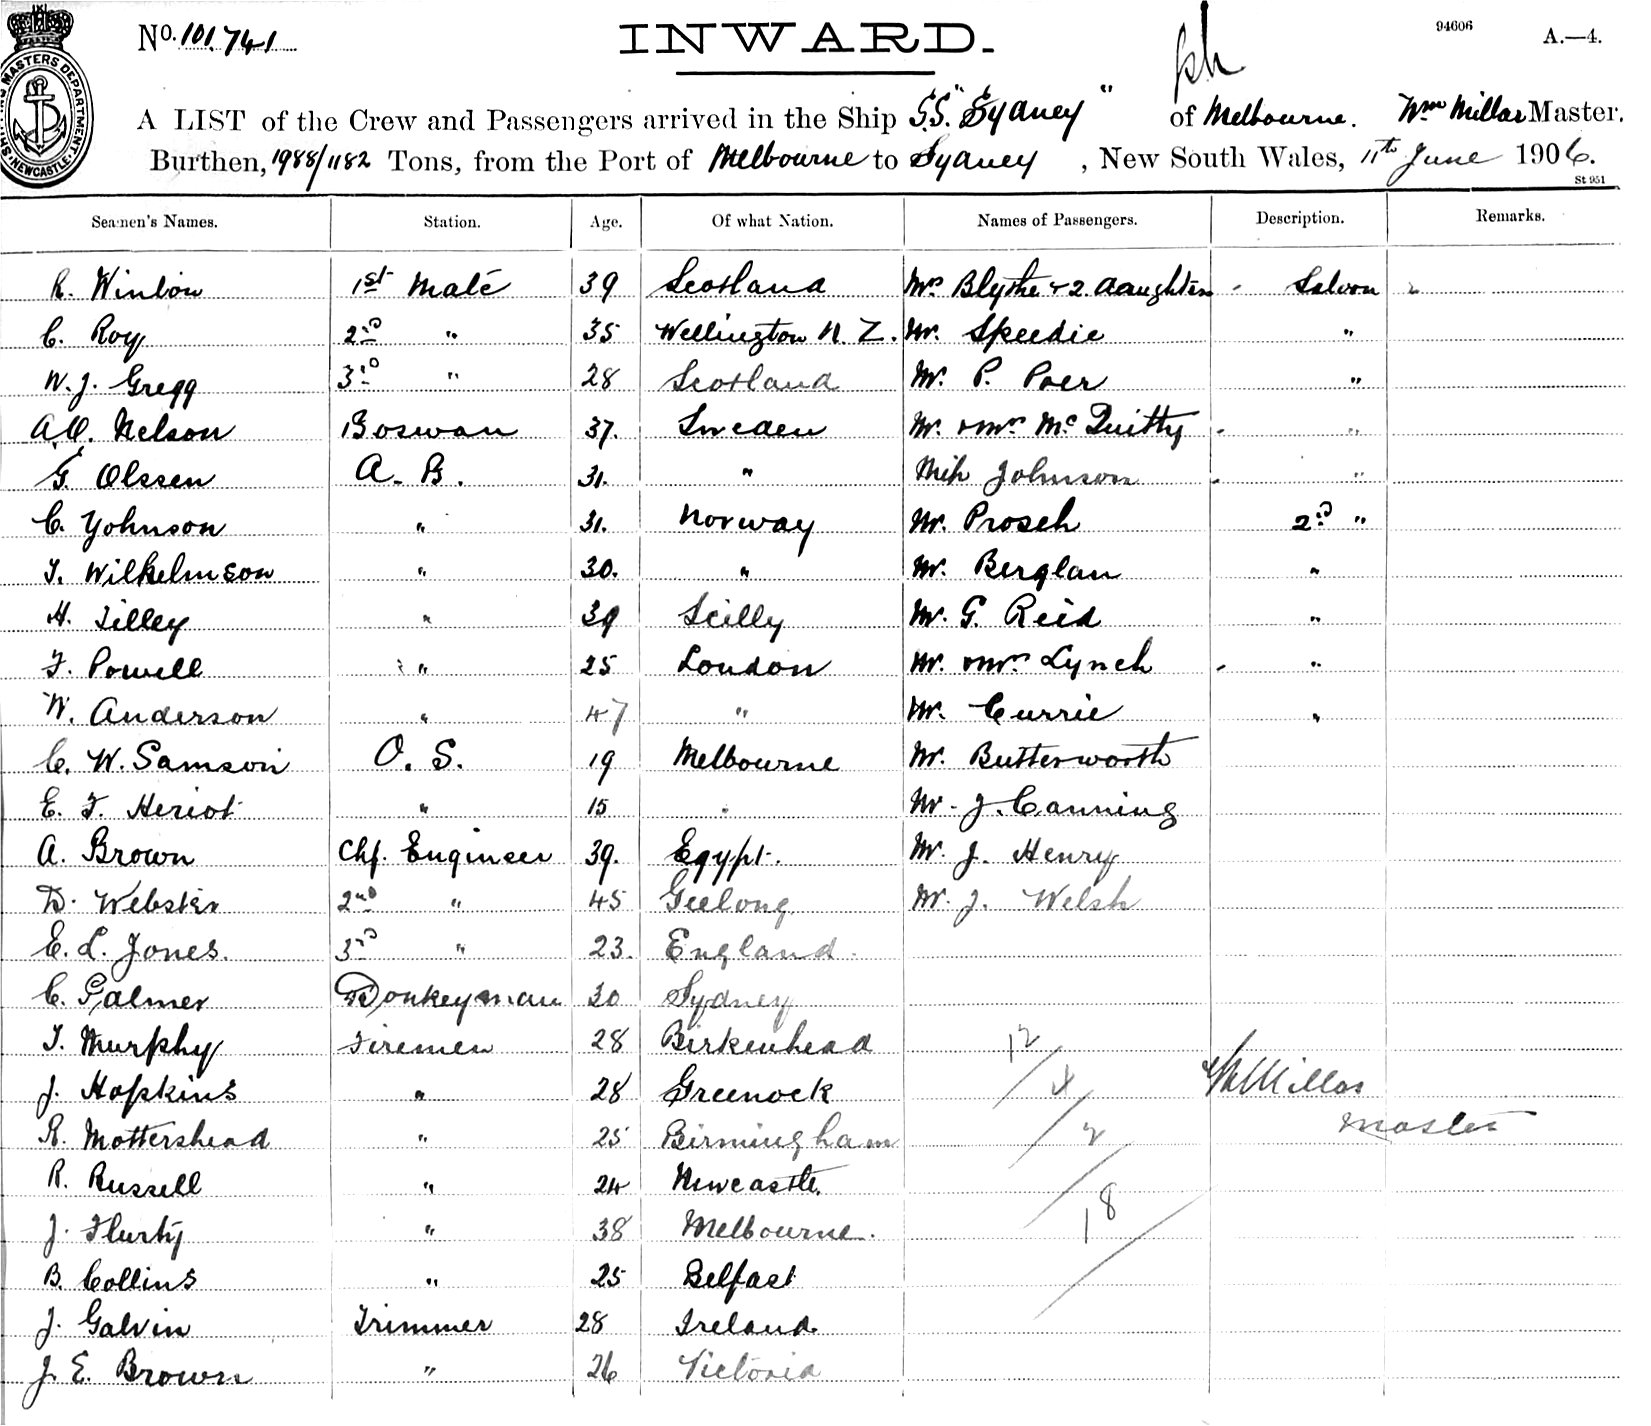 No. 101.741
INWARD.
94606
A.—4.
A LIST of the Crew and Passengers arrived in the Ship S.S. "Sydney" of Melbourne. Wm Millar Master.
Burthen, 1988/1182 Tons, from the Port of Melbourne to Sydney, New South Wales, 11th June 1906.
St 951
MASTERS DEPARTMENT. NEWCASTLE.
Seamen's Names. Station. Age. Of what Nation. Names of Passengers. Description. Remarks.
R. Winlow 1st Mate 39 Scotland Mrs Blythe + 2 daughters - Saloon
C. Roy 2nd " 35 Wellington N.Z. Mr. Speedie "
W. J. Gregg 3rd " 28 Scotland Mr. P. Poer "
A.O. Nelson Boswan 37. Sweden Mr. + Mrs McQuitty - "
G. Olssen A. B. 31. " Miss Johnson - "
C. Yohnson " 31. Norway Mr. Prosch 2nd "
T. Wilhelmson " 30. " Mr. Berglan "
H. Tilley " 39 Scilly Mr. G. Reid "
F. Powell " 25 London Mr. + Mrs Lynch - "
W. Anderson " 47 " Mr. Currie "
C. W. Samson O. S. 19 Melbourne Mr. Butterworth
E. F. Heriot " 15 " Mr. J. Canning
A. Brown Chf. Engineer 39. Egypt. Mr. J. Henry
D. Webster 2nd " 45 Geelong Mr. J. Welsh
E. L. Jones. 3rd " 23. England.
C. Palmer Donkeyman 30 Sydney
T. Murphy Firemen 28 Birkenhead 12
J. Hopkins " 28 Greenock 4 Wm Millar
R. Mottershead " 25 Birmingham 2 Master
R. Russell " 24 Newcastle.
J. Flurty " 38 Melbourne. 18
B. Collins " 25 Belfast
J. Galvin Trimmer 28 Ireland.
J. E. Brown " 26 Victoria